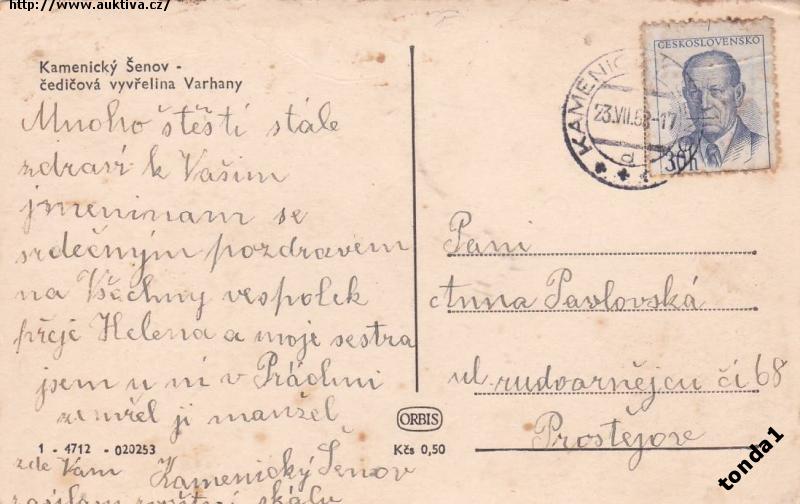 http://www.auktiva.cz/
Kamenický Šenov -
čedičová vyvřelina Varhany
Mnoho štěstí stále
zdraví k Vašim
jmeninam se
srdečným pozdravem
na Všechny vespolek
přeje Helena a moje sestra
jsem u ní v Práchni
zemřel ji manžel
1 - 4712 - 020253
zde Vám Kamenický Šenov
zasílam
skálu
ORBIS
Kčs 0,50
KAMENIC
23.VII.53-17
d
ČESKOSLOVENSKO
30h
Paní
Anna Pavlovská
ul. rudoarnějcu čí 68
Prostějove
tonda1